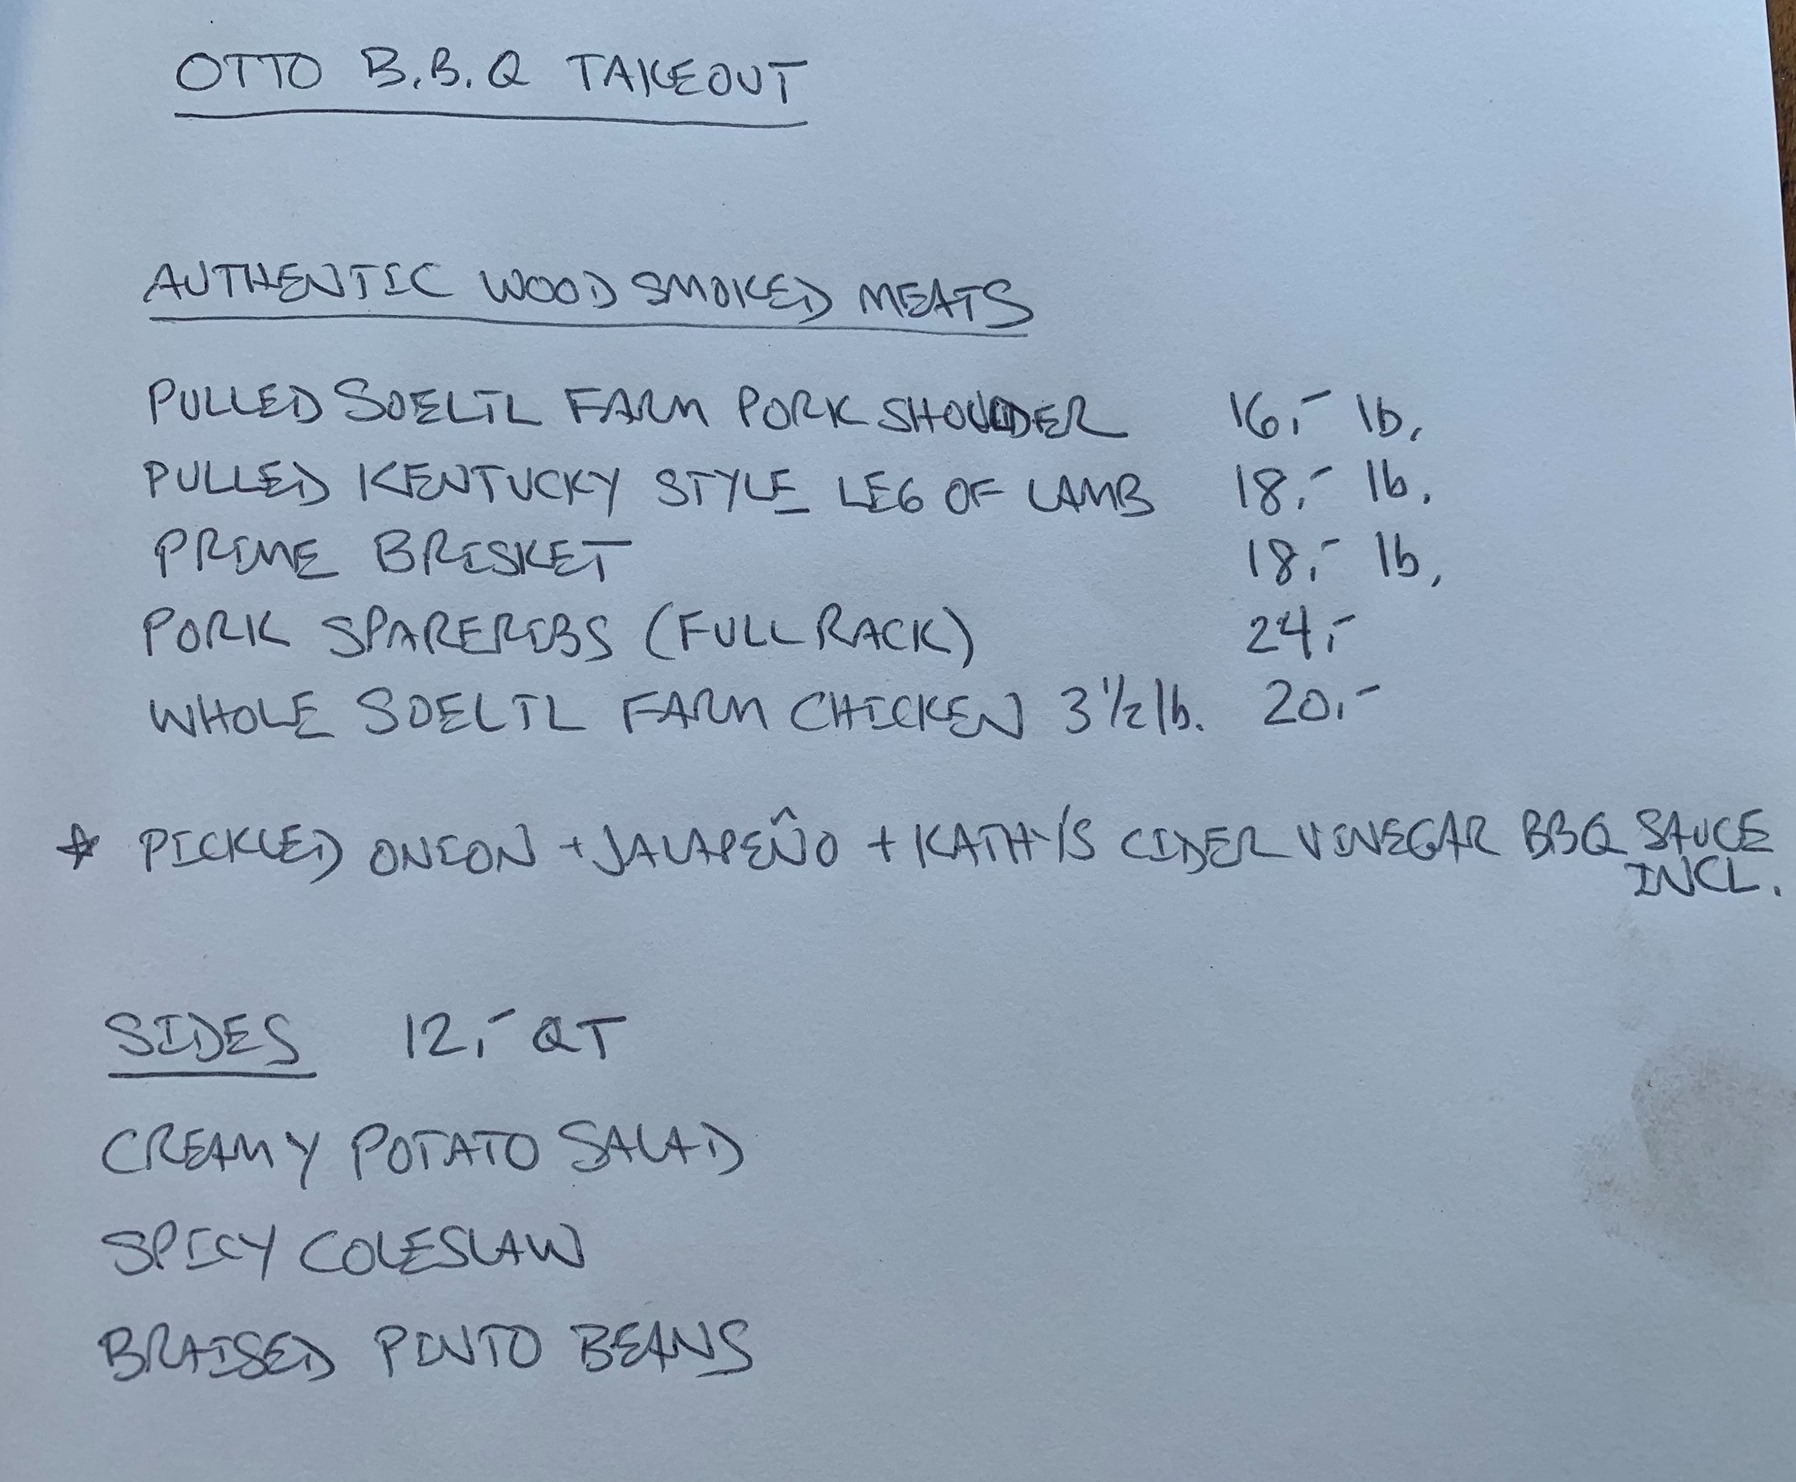 OTTO B.B.Q TAKEOUT
AUTHENTIC WOOD SMOKED MEATS
PULLED SOELTL FARM PORK SHOULDER 16,- lb.
PULLED KENTUCKY STYLE LEG OF LAMB 18,- lb.
PRIME BRISKET 18,- lb.
PORK SPARERIBS (FULL RACK) 24,-
WHOLE SOELTL FARM CHICKEN 3 1/2 lb. 20,-
* PICKLED ONION + JALAPEÑO + KATHY'S CIDER VINEGAR BBQ SAUCE
INCL.
SIDES 12,- QT
CREAMY POTATO SALAD
SPICY COLESLAW
BRAISED PINTO BEANS